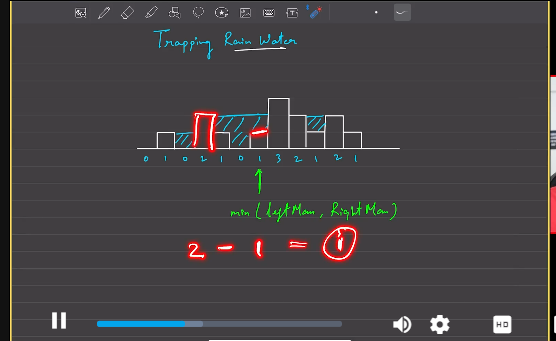 Trapping Rain Water
0 1 0 2 1 0 1 3 2 1 2 1
min (Left Max, Right Max)
2 - 1 = 1
HD